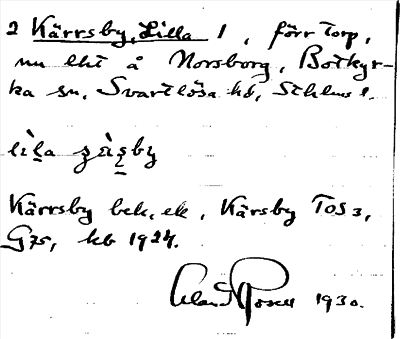 2 Kärrsby, Lilla 1, förr torp,
nu lht å Norsborg, Botkyr-
ka sn, Svartlösa hd, Sthlms l.
Kärrsby bek. ek, Kärsby TOS 3,
G75, kb 1924.
1930.